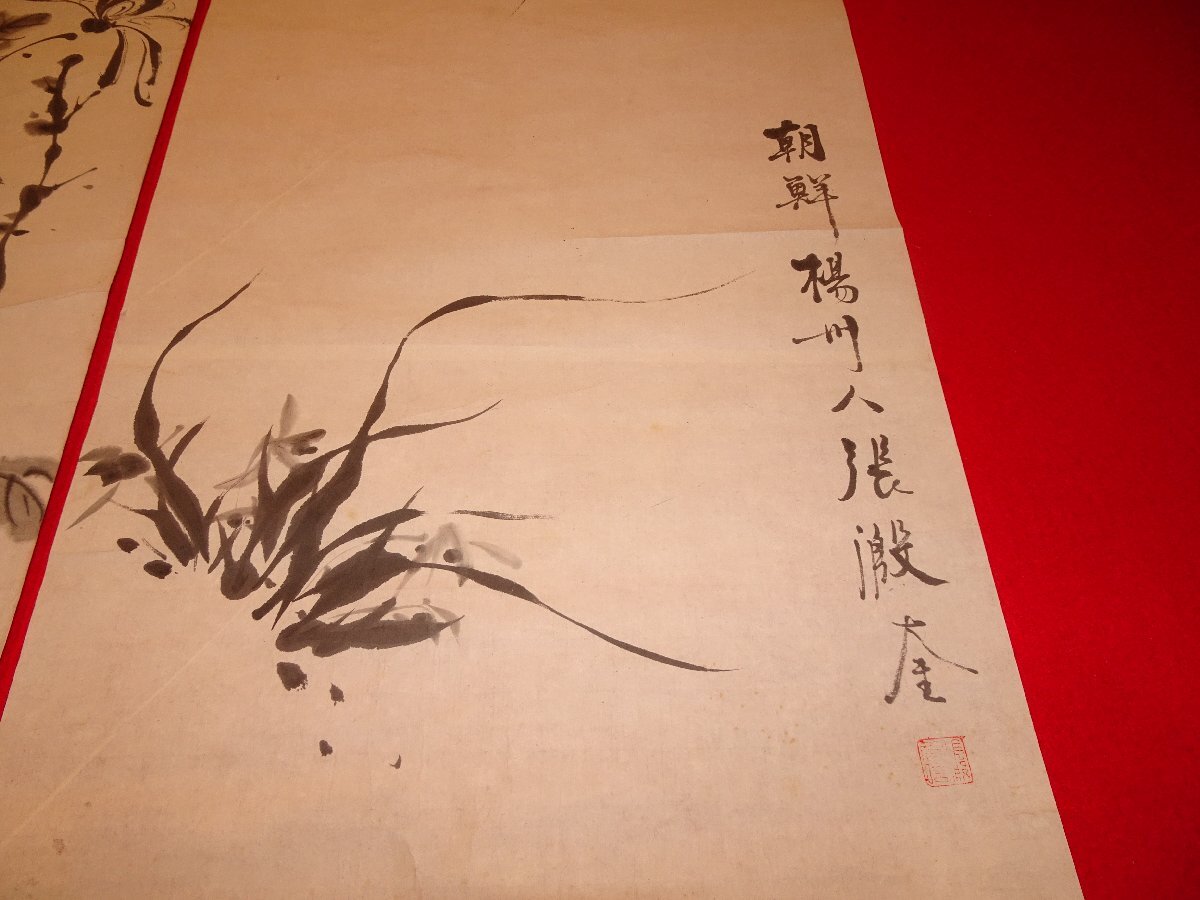 朝鮮楊州人張奎